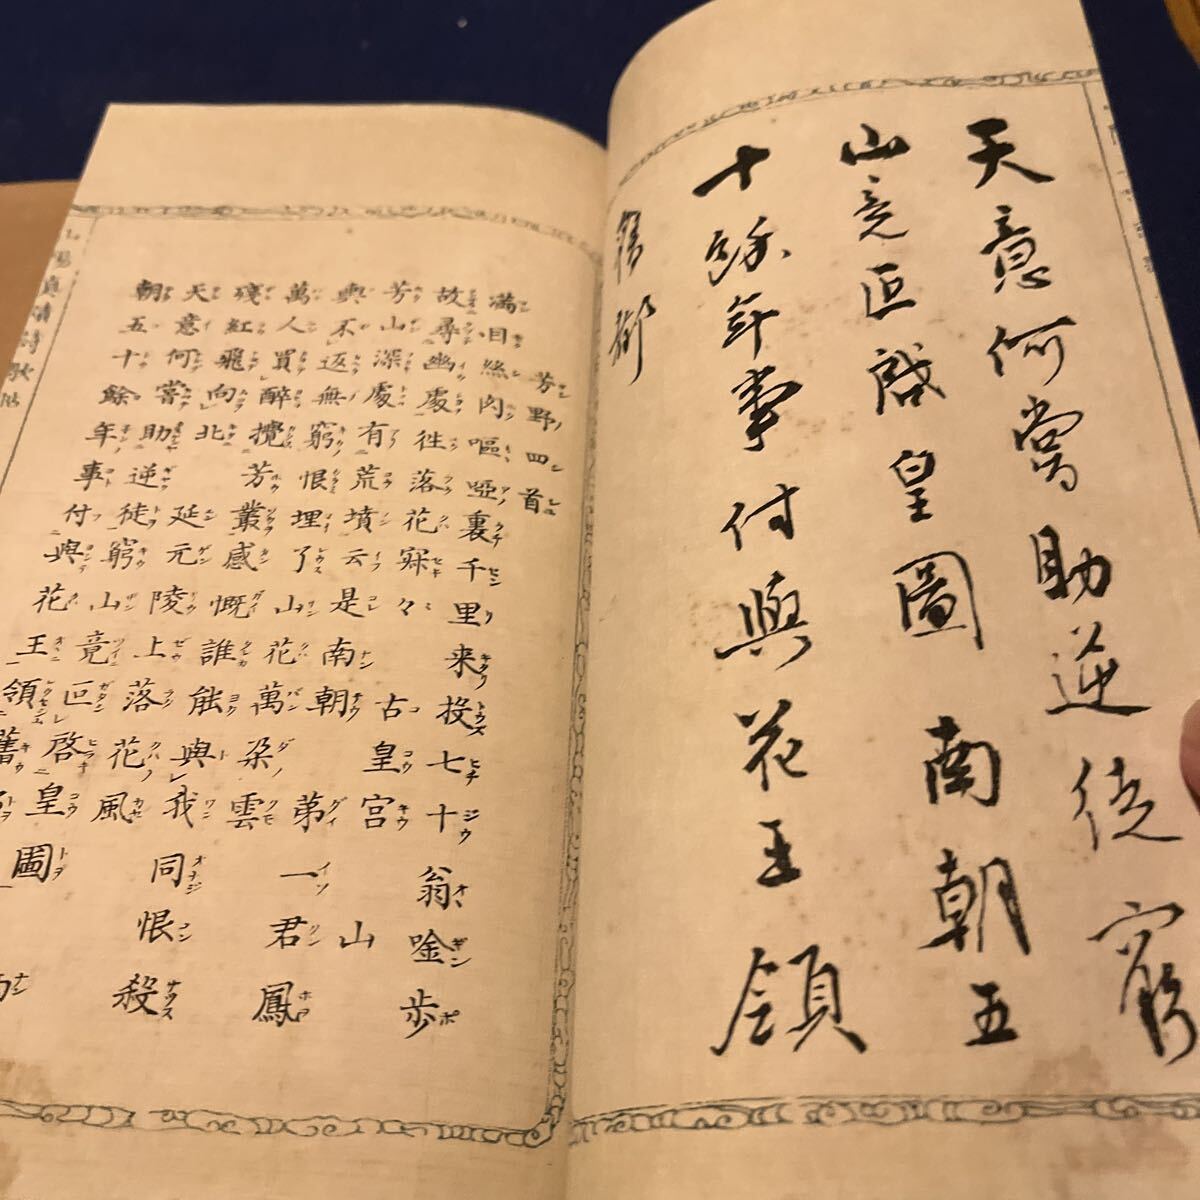 天意何嘗助逆徒窮
山竟叵啟皇圖南朝五
十餘年事付與花王領
舊都
芳野四首
満目絲肉嘔啞裏千里来投七十翁唫歩
故尋幽處徃落花寂々古皇宮山
芳山深處有荒墳云是南朝第一君鳳
輿不返無窮恨埋了山花萬朶雲
萬人買醉攪芳叢感慨誰能與我同恨殺
殘紅飛向北延元陵上落花風
天意何嘗助逆徒窮山竟叵啓皇圖南
朝五十餘年事付與花王領舊
山陽真蹟詩歌帖